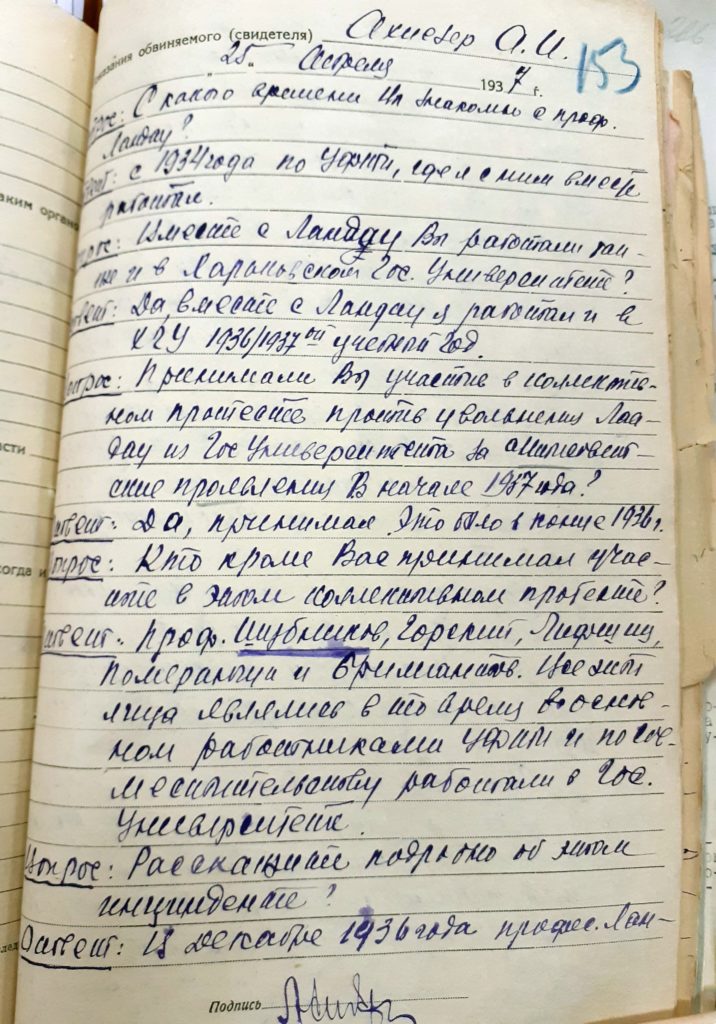 показания обвиняемого (свидетеля) Ахиезер А.И.
153
"25" Апреля 1937 г.
Вопрос: С какого времени Вы знакомы с проф.
Ландау?
Ответ: с 1934 года по УФТИ, где я с ним вместе
работал.
Вопрос: Вместе с Ландау Вы работали
и в Харьковском Гос. Университете?
Ответ: Да, вместе с Ландау я работал и в
ХГУ 1936/1937ой учебный год.
Вопрос: Принимали Вы участие в коллектив-
ном протесте против увольнения Лан-
дау из Гос Университета за антисовет-
ские проявления в начале 1937 года?
Ответ: Да, принимал. Это было в конце 1936 г.
Вопрос: Кто кроме Вас принимал учас-
тие в этом коллективном протесте?
Ответ: Проф. Шубников, Горский, Лифшиц,
Померанчук и Брилиантов. Все эти
лица являлись в то время в основ-
ном работниками УФТИ и по сов-
местительству работали в Гос.
Университете.
Вопрос: Расскажите подробно об этом
инциденте?
Ответ: В декабре 1936 года профес. Лан-
Подпись